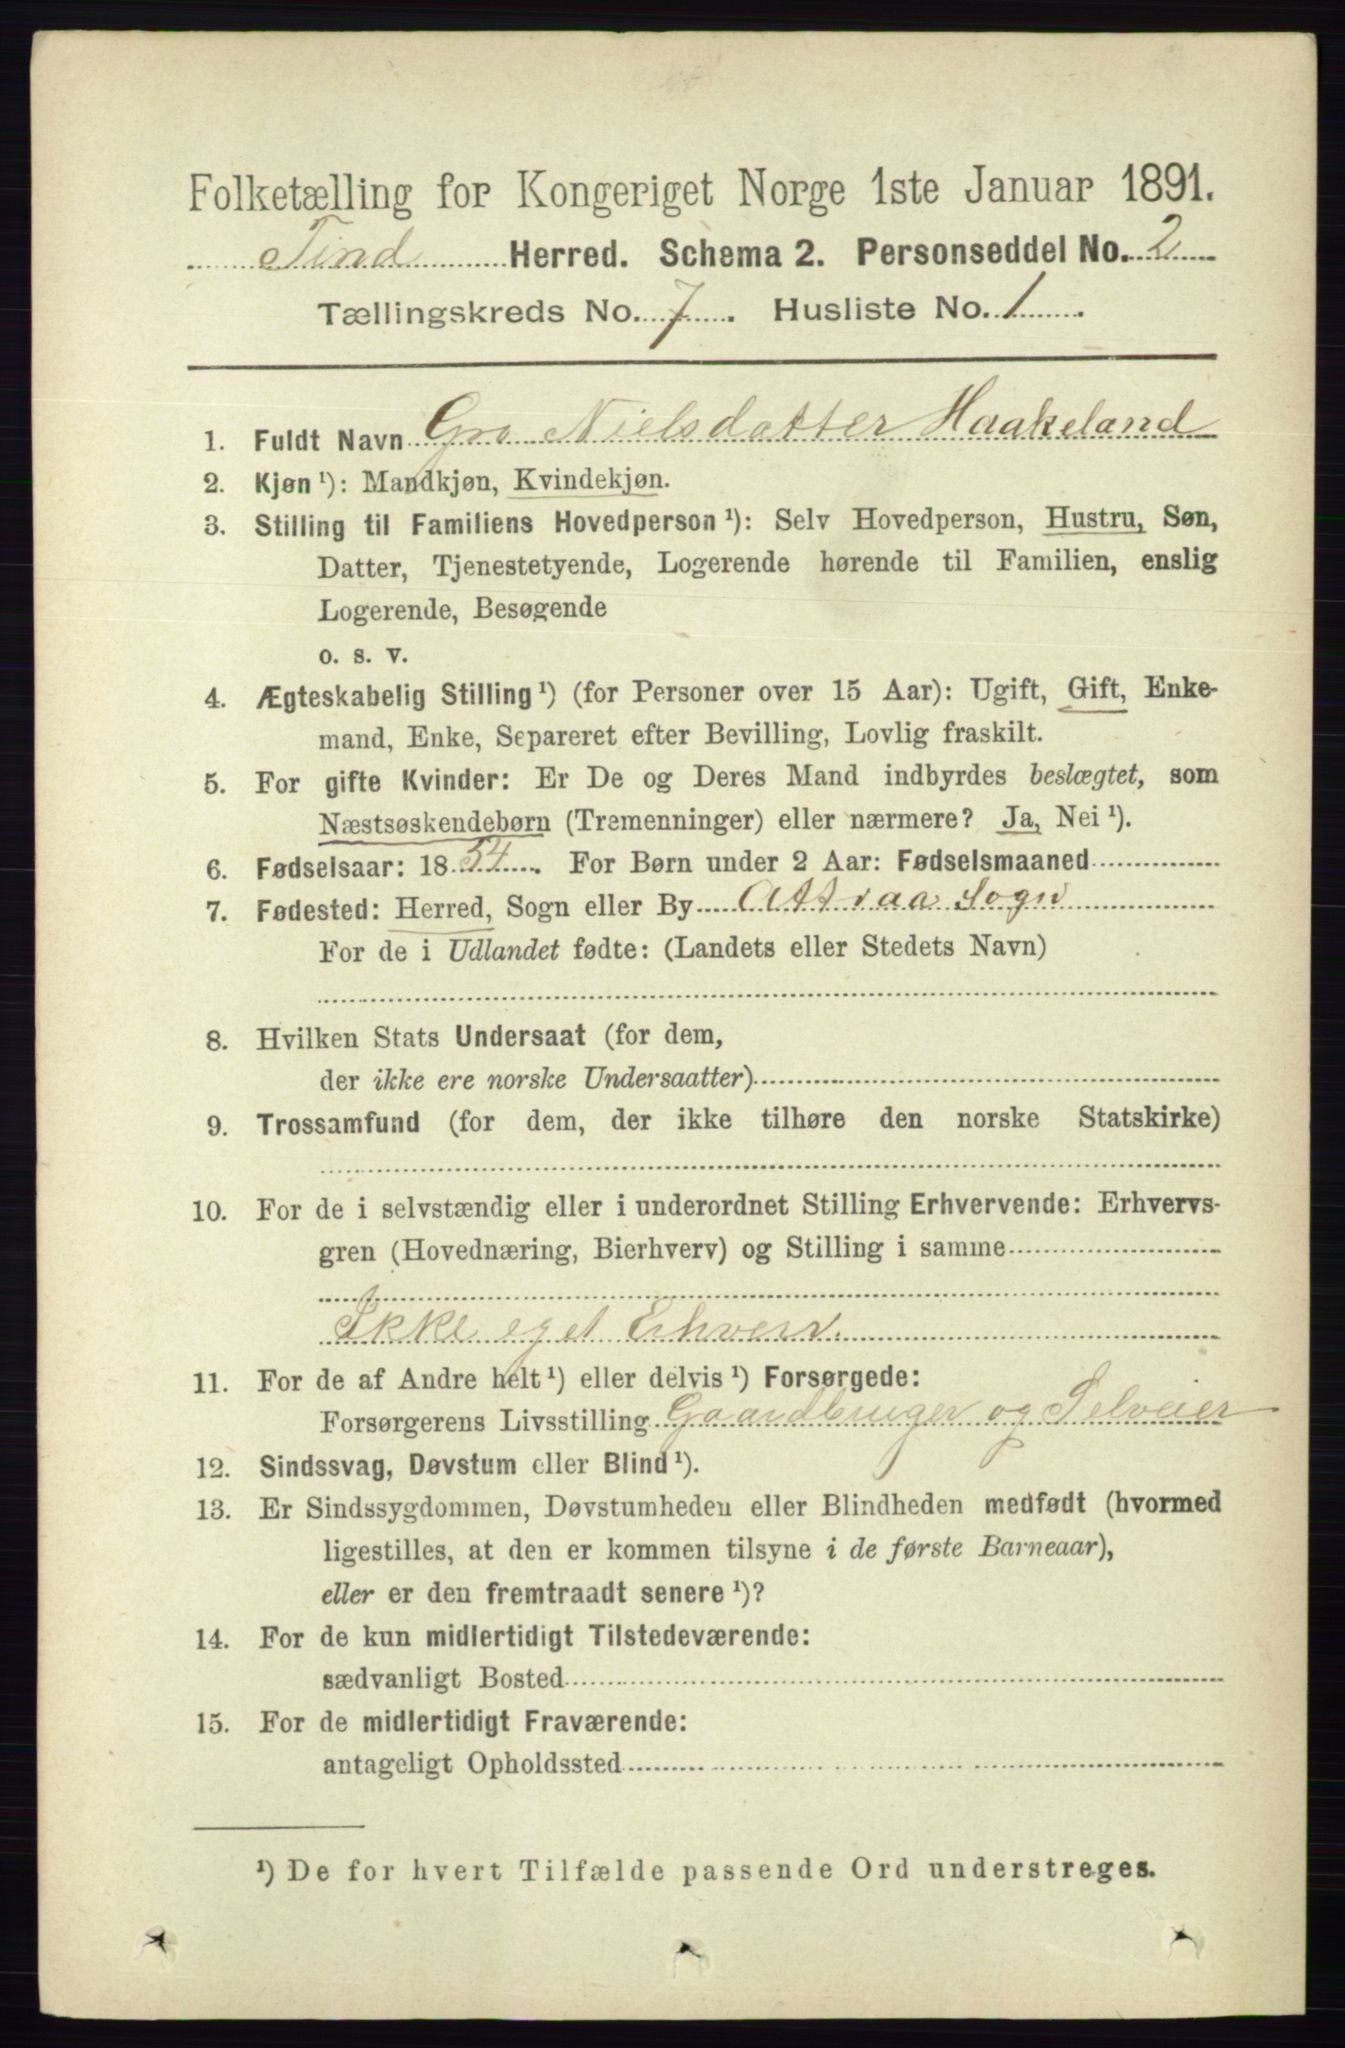 Folketælling for Kongeriget Norge 1ste Januar 1891.
Tind Herred. Schema 2. Personseddel No. 2
Tællingskreds No. 7. Husliste No. 1.
1. Fuldt Navn Gro Nielsdatter Haakeland
2. Kjøn ¹): Mandkjøn, Kvindekjøn.
3. Stilling til Familiens Hovedperson ¹): Selv Hovedperson, Hustru, Søn,
Datter, Tjenestetyende, Logerende hørende til Familien, enslig
Logerende, Besøgende
o. s. v.
4. Ægteskabelig Stilling ¹) (for Personer over 15 Aar): Ugift, Gift, Enke-
mand, Enke, Separeret efter Bevilling, Lovlig fraskilt.
5. For gifte Kvinder: Er De og Deres Mand indbyrdes beslægtet, som
Næstsøskendebørn (Tremenninger) eller nærmere? Ja, Nei ¹).
6. Fødselsaar: 1854. For Børn under 2 Aar: Fødselsmaaned
7. Fødested: Herred, Sogn eller By Attraa Sogn
For de i Udlandet fødte: (Landets eller Stedets Navn)
8. Hvilken Stats Undersaat (for dem,
der ikke ere norske Undersaatter)
9. Trossamfund (for dem, der ikke tilhøre den norske Statskirke)
10. For de i selvstændig eller i underordnet Stilling Erhvervende: Erhvervs-
gren (Hovednæring, Bierhverv) og Stilling i samme
Ikke eget Erhverv.
11. For de af Andre helt ¹) eller delvis ¹) Forsørgede:
Forsørgerens Livsstilling Gaardbruger og Selveier
12. Sindssvag, Døvstum eller Blind ¹).
13. Er Sindssygdommen, Døvstumheden eller Blindheden medfødt (hvormed
ligestilles, at den er kommen tilsyne i de første Barneaar),
eller er den fremtraadt senere ¹)?
14. For de kun midlertidigt Tilstedeværende:
sædvanligt Bosted
15. For de midlertidigt Fraværende:
antageligt Opholdssted
¹) De for hvert Tilfælde passende Ord understreges.